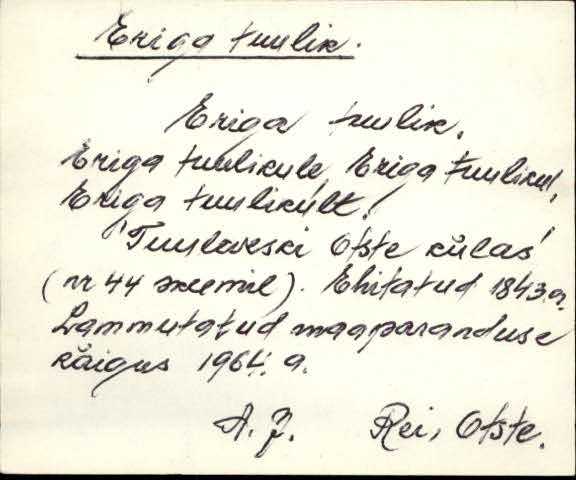 Eriga tuulik.
Eriga tuulik,
Eriga tuulikule, Eriga tuulikul,
Eriga tuulikult.
'Tuuleveski Otste külas'
(nr 44 skeemil). Ehitatud 1843.a.
Lammutatud maaparanduse
käigus 1964. a.
A. J. Rei, Otste.